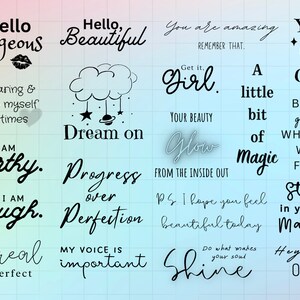 ello
geous
Hello,
Beautiful
You are amazing
REMEMBER THAT.
aring &
myself
times
Dream on
Get it,
Girl.
YOUR BEAUTY
Glow
FROM THE INSIDE OUT
A
little
bit
of
Magic
AM
thy.
I AM
ugh.
Progress
over
Perfection
P.S. I hope you feel
beautiful today
real
erfect
MY VOICE IS
important
Do what makes
your soul
Shine
in y
Ma